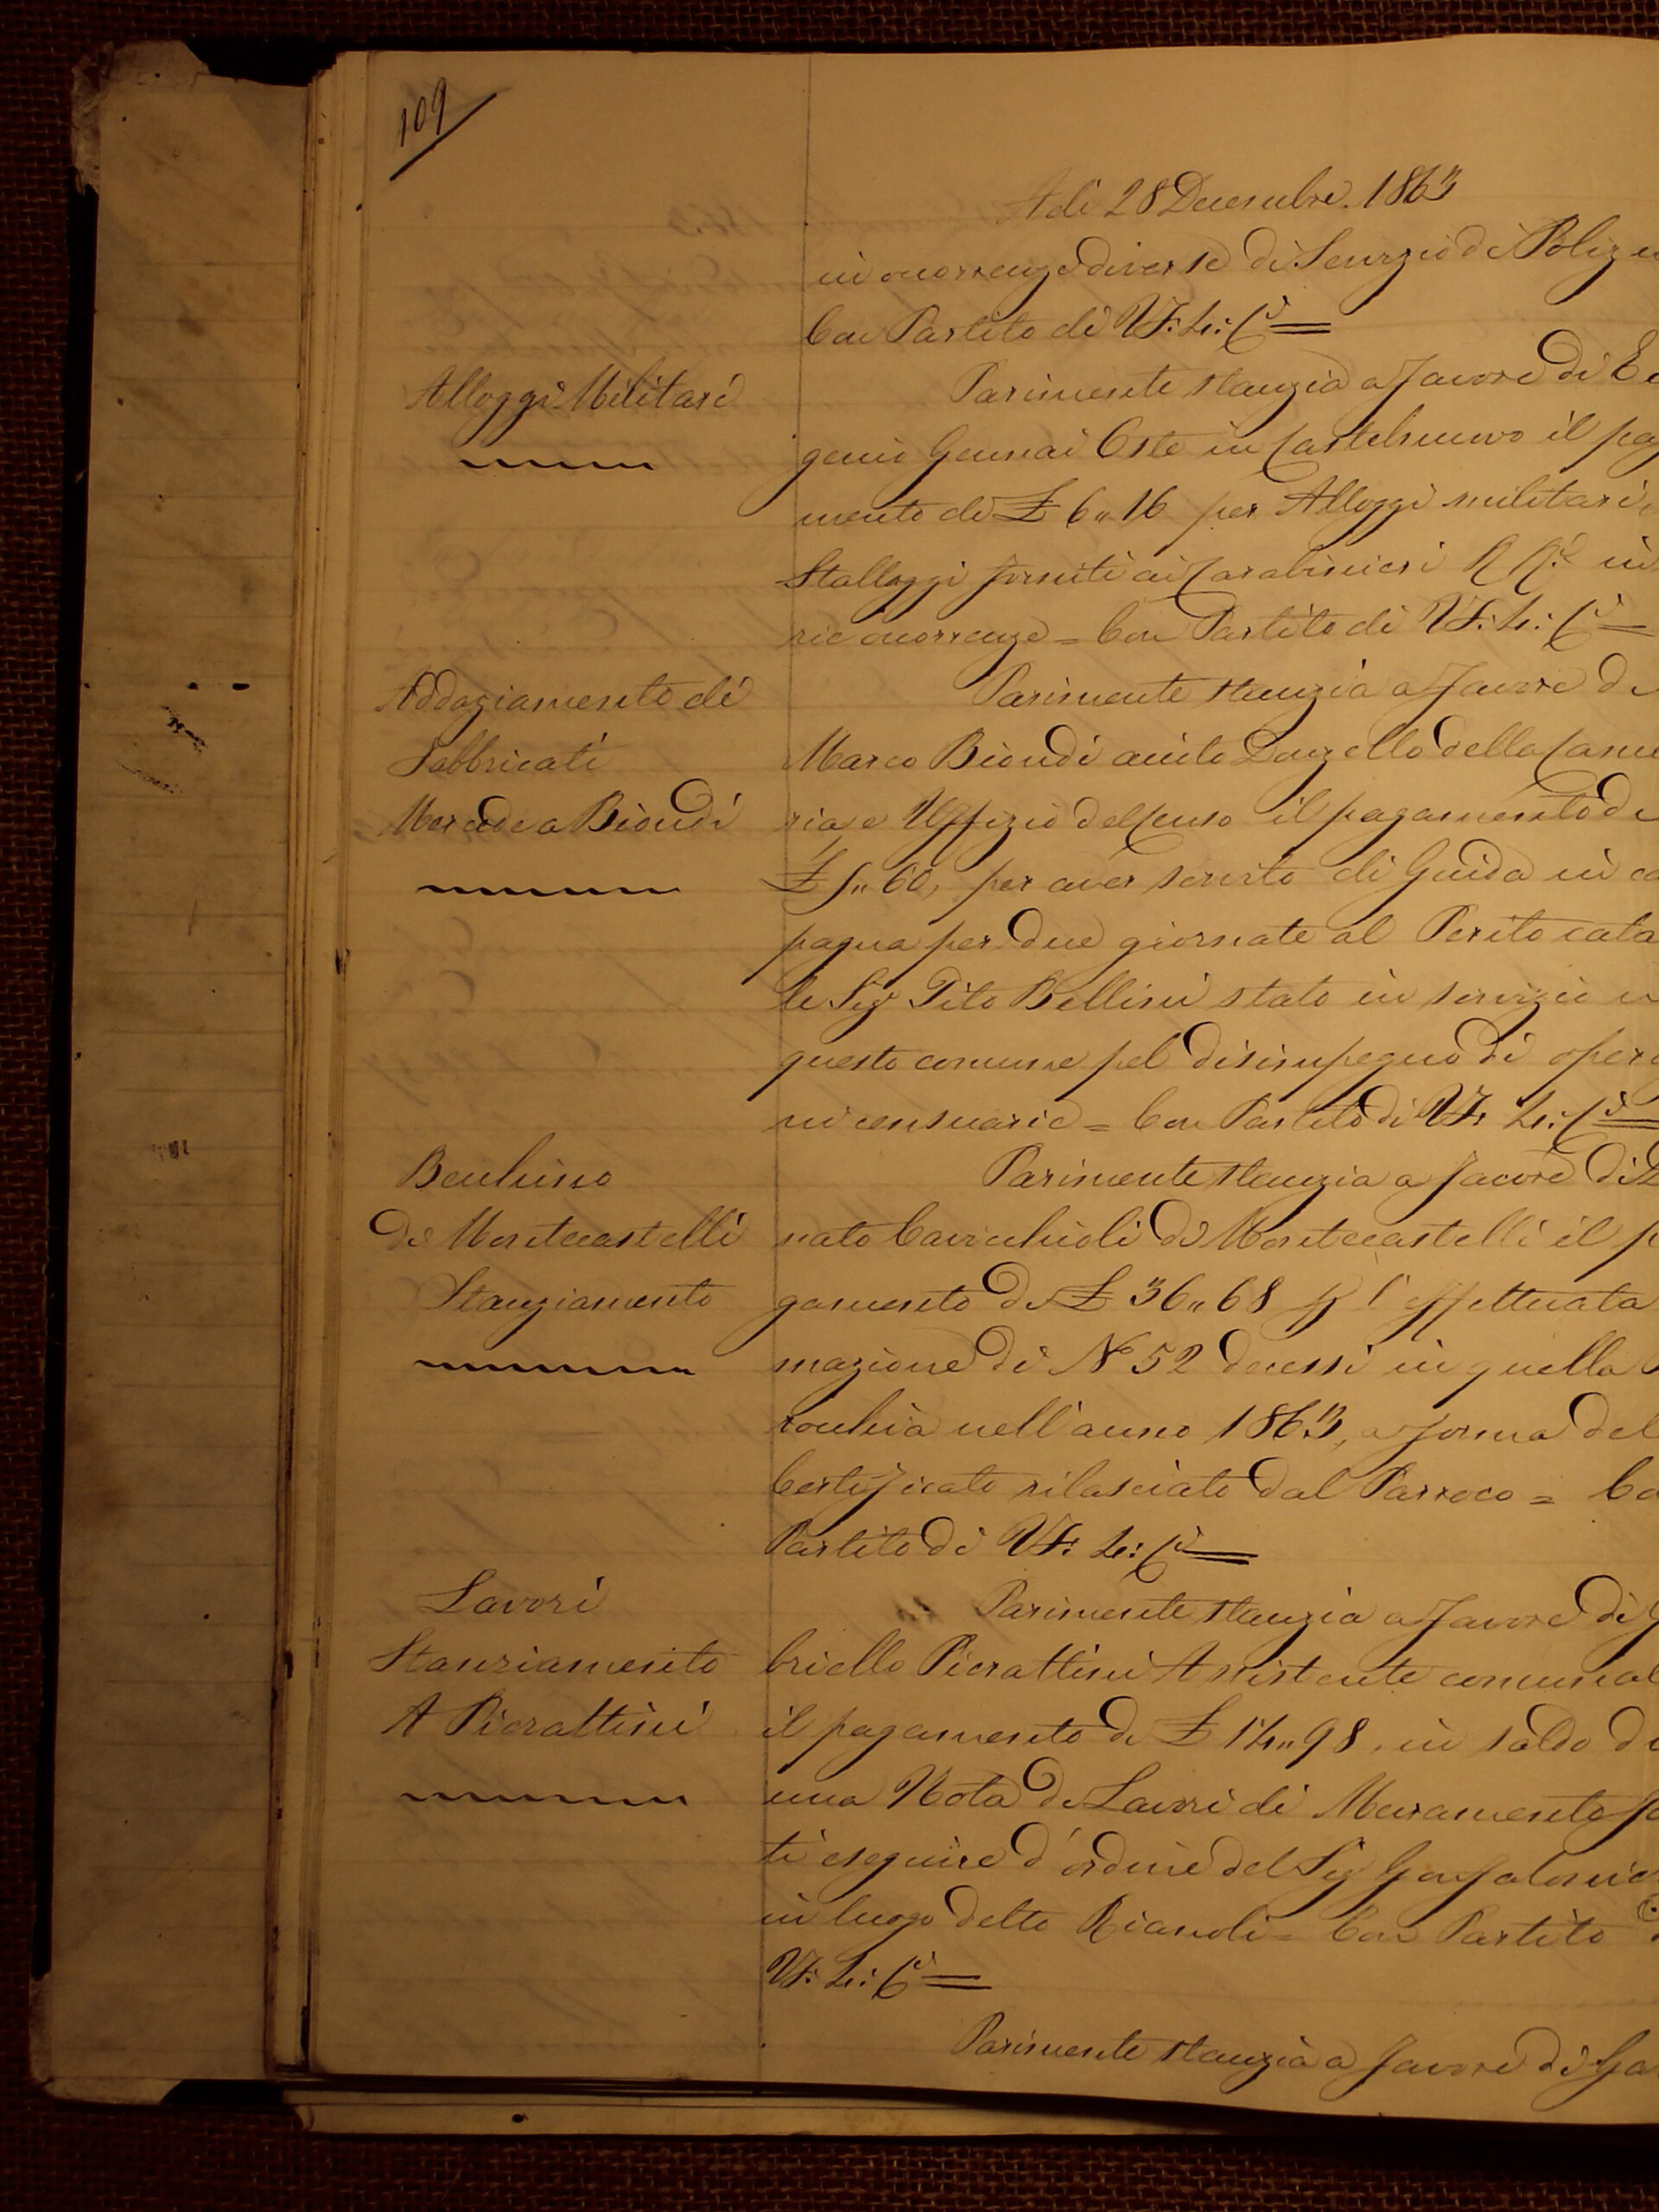 109
Adì 28 Decembre. 1863
in occorrenze diverse di Servizio di Polizi
Con Partito di VF: 4: Ci =
Alloggi Militari
Parimente stanzia a favore di Eu
genio Gennai Oste in Castelnuovo il pag
mento di £ 6„16 per Alloggi militari,
Stalloggi forniti ai Carabinieri RRi in
rie occorrenze = Con Partito di VF: 4: Ci =
Addaziamento di
Fabbricati
Mercede a Biondi
Parimente stanzia a favore di
Marco Biondi aiuto Donzello della Cance
ria, e Uffizio del Censo il pagamento di
£ 5„60, per aver servito di Guida in ca
pagna per due giornate al Perito cata
le Sigr Tito Bellini stato in servizio in
questo comune pel disimpegno di opera
ni censuarie = Con Partito di VF: 4: Ci =
Becchino
Di Montecastelli
Stanziamento
Parimente stanzia a favore di D
nato Cavicchioli di Montecastelli il p
gamento di £ 36„68 p l'effettuata
mazione di No 52 decessi in quella
rocchia nell'anno 1863, a forma del
Certificato rilasciato dal Parroco = Co
Partito di VF: 4: Ci =
Lavori
Stanziamento
A Pierattini
Parimente stanzia a favore di G
briello Pierattini Assistente comunal
il pagamento di £ 14„98, in saldo di
una Nota di Lavori di Muramento fa
ti eseguire d'ordine del Sig Gonfalonie
in luogo detto Rianoli = Con Partito d
VF: 4: Ci =
Parimente stanzia a favore di Ga